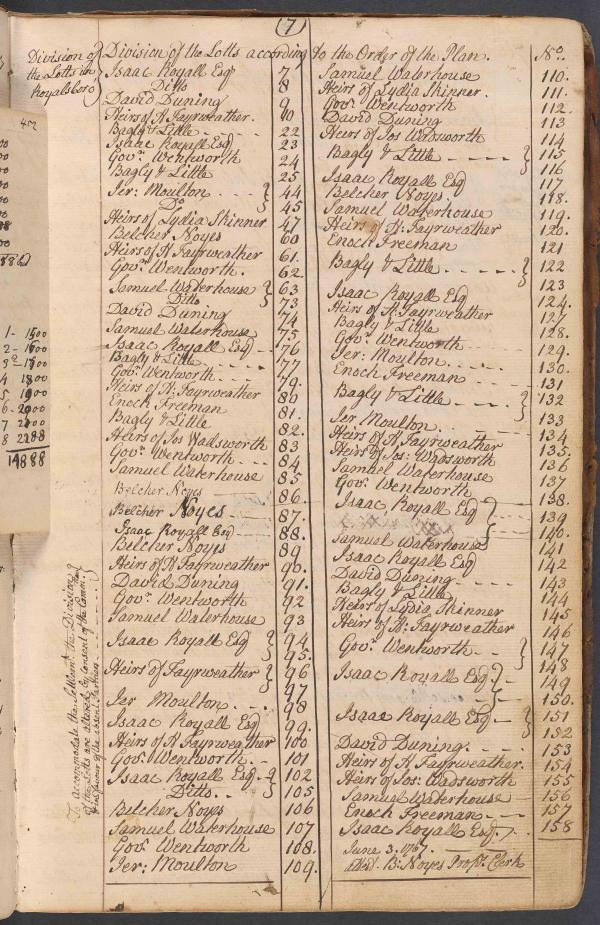 (7)
Division of the Lotts in Royalsboro
Division of the Lotts according to the Order of the Plan. No.
Isaac Royall Esq 7
Ditto 8
David Duning 9
Heirs of H. Fayrweather. 10
Bagly & Little 22
Isaac Royall Esq 23
Govr. Wentworth 24
Bagly & Little 25
Jer: Moulton 44
Do. 45
Heirs of Lydia Skinner 47
Belcher Noyes 60
Heirs of H. Fayrweather 61.
Govr. Wentworth. 62.
Samuel Waterhouse 63
Ditto 73
David Duning 74
Samuel Waterhouse 75
Isaac Royall Esq 76
Bagly & Little 77
Govr. Wentworth 79.
Heirs of H: Fayrweather 80
Enoch Freeman 81.
Bagly & Little 82.
Heirs of Jos Wadsworth 83
Govr. Wentworth 84.
Samuel Waterhouse 85
Belcher Noyes 86.
Belcher Noyes 87.
Isaac Royall Esq 88.
Belcher Noyes 89
Heirs of H Fayrweather 90.
David Duning 91.
Govr. Wentworth 92
Samuel Waterhouse 93
Isaac Royall Esq 94
95.
Heirs of Fayrweather 96
97
Jer Moulton 98
Isaac Royall Esq 99.
Heirs of H Fayrweather 100
Govr. Wentworth 101
Isaac Royall Esq 102
Ditto 105
Belcher Noyes 106
Samuel Waterhouse 107
Govr. Wentworth 108.
Jer: Moulton 109.
Samuel Waterhouse 110.
Heirs of Lydia Skinner. 111.
Govr. Wentworth 112
David Duning 113
Heirs of Jos Wadsworth 114
Bagly & Little 115
116
Isaac Royall Esq 117
Belcher Noyes. 118.
Samuel Waterhouse 119.
Heirs of H: Fayrweather 120.
Enoch Freeman 121
Bagly & Little 122
123
Isaac Royall Esq 124.
Heirs of H. Fayrweather 127
Bagly & Little 128.
Govr. Wentworth 129.
Jer: Moulton 130.
Enoch Freeman 131
Bagly & Little 132
133
Jer Moulton 134
Heirs of H Fayrweather 135.
Heirs of Jos: Wadsworth 136
Samuel Waterhouse 137
Govr. Wentworth 138.
Isaac Royall Esq 139
140.
Samuel Waterhouse 141
Isaac Royall Esq 142
David Duning 143
Bagly & Little 144
Heirs of Lydia Skinner 145
Heirs of H: Fayrweather 146
Govr. Wentworth 147
148
Isaac Royall Esq. 149
150.
Isaac Royall Esq 151
152
David Duning. 153
Heirs of H: Fayrweather. 154
Heirs of Jos: Wadsworth 155
Samuel Waterhouse 156
Enoch Freeman 157
Isaac Royall Esq. 158
June 3. 1767.
attest. B: Noyes Propr. Clerk
To accommodate the Settlemt. the Divisions
of the Lotts are altered by Consent
1 - 1500
2 - 1600
3 - 1700
4 1800
5 1900
6 - 2000
7 2100
8 2288
14888